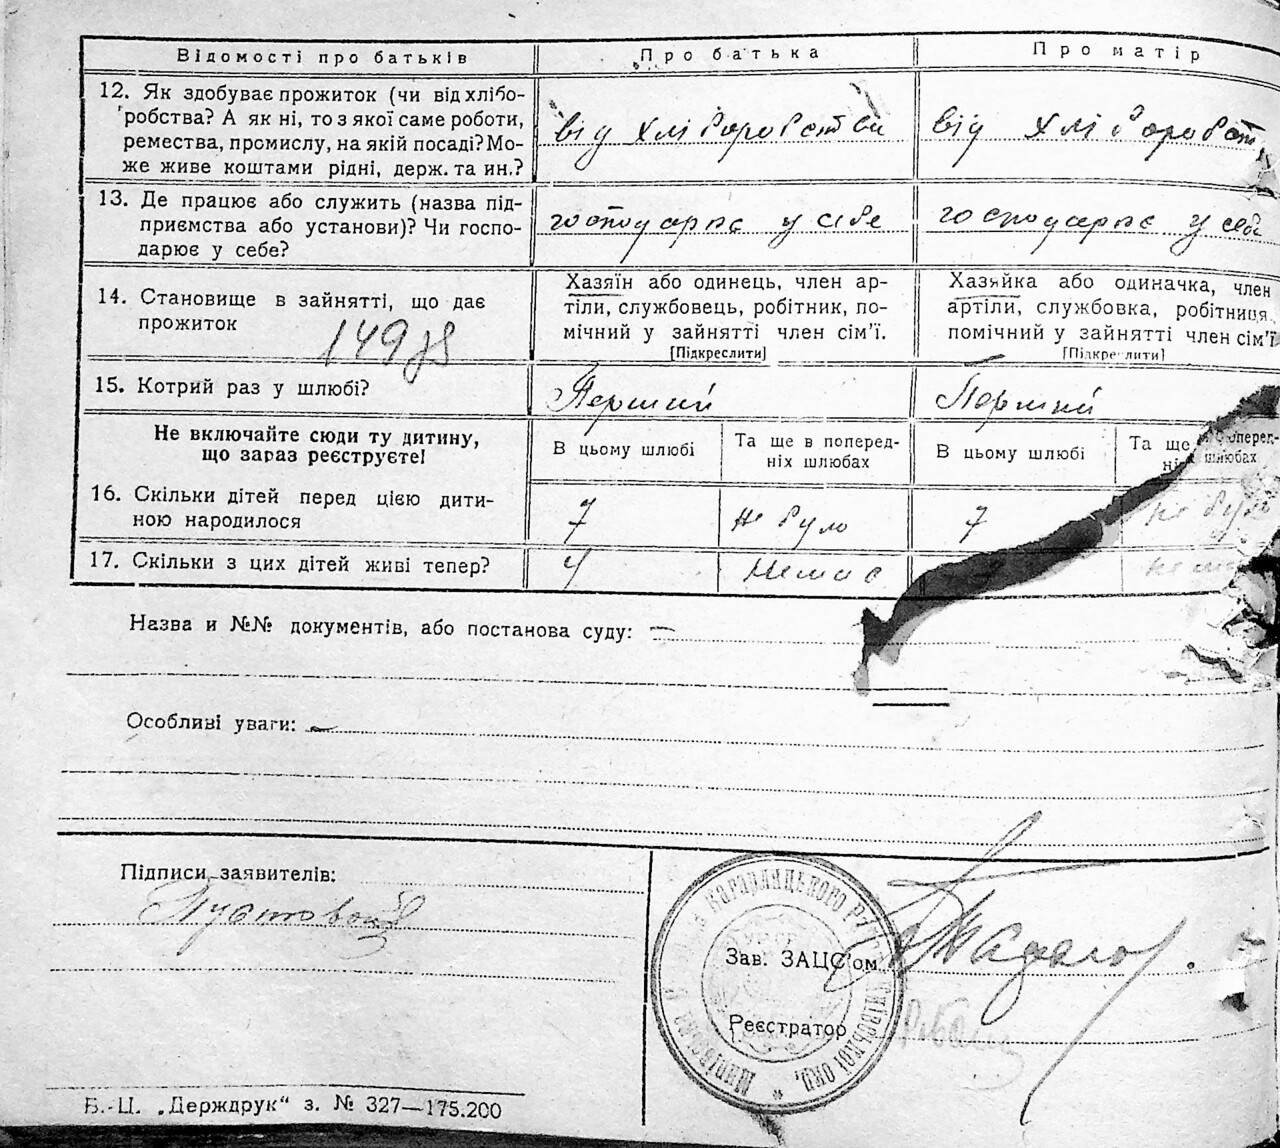 Відомості про батьків
Про батька
Про матір
12. Як здобуває прожиток (чи від хлібо-
робства? А як ні, то з якої саме роботи,
ремества, промислу, на якій посаді? Мо-
же живе коштами рідні, держ. та ин.?
від хліборобства
від хліборобст
13. Де працює або служить (назва під-
приємства або установи)? Чи госпо-
дарює у себе?
господарює у себе
господарює у себе
14. Становище в зайнятті, що дає
прожиток
149
Хазяїн або одинець, член ар-
тіли, службовець, робітник, по-
мічний у зайнятті член сім'ї.
[Підкреслити]
Хазяйка або одиначка, член
артіли, службовка, робітниця,
помічний у зайнятті член сім'ї
[Підкреслити]
15. Котрий раз у шлюбі?
Перший
Перший
Не включайте сюди ту дитину,
що зараз реєструєте!
В цьому шлюбі
Та ще в поперед-
ніх шлюбах
В цьому шлюбі
Та ще в поперед-
ніх шлюбах
16. Скільки дітей перед цією дити-
ною народилося
7
не було
7
не було
17. Скільки з цих дітей живі тепер?
4
немає
Назва и №№ документів, або постанова суду: —
Особливі уваги: —
Підписи заявителів:
Пустовой
Зав. ЗАЦС'ом
Реєстратор
Б.-Ц. „Держдрук“ з. № 327—175.200